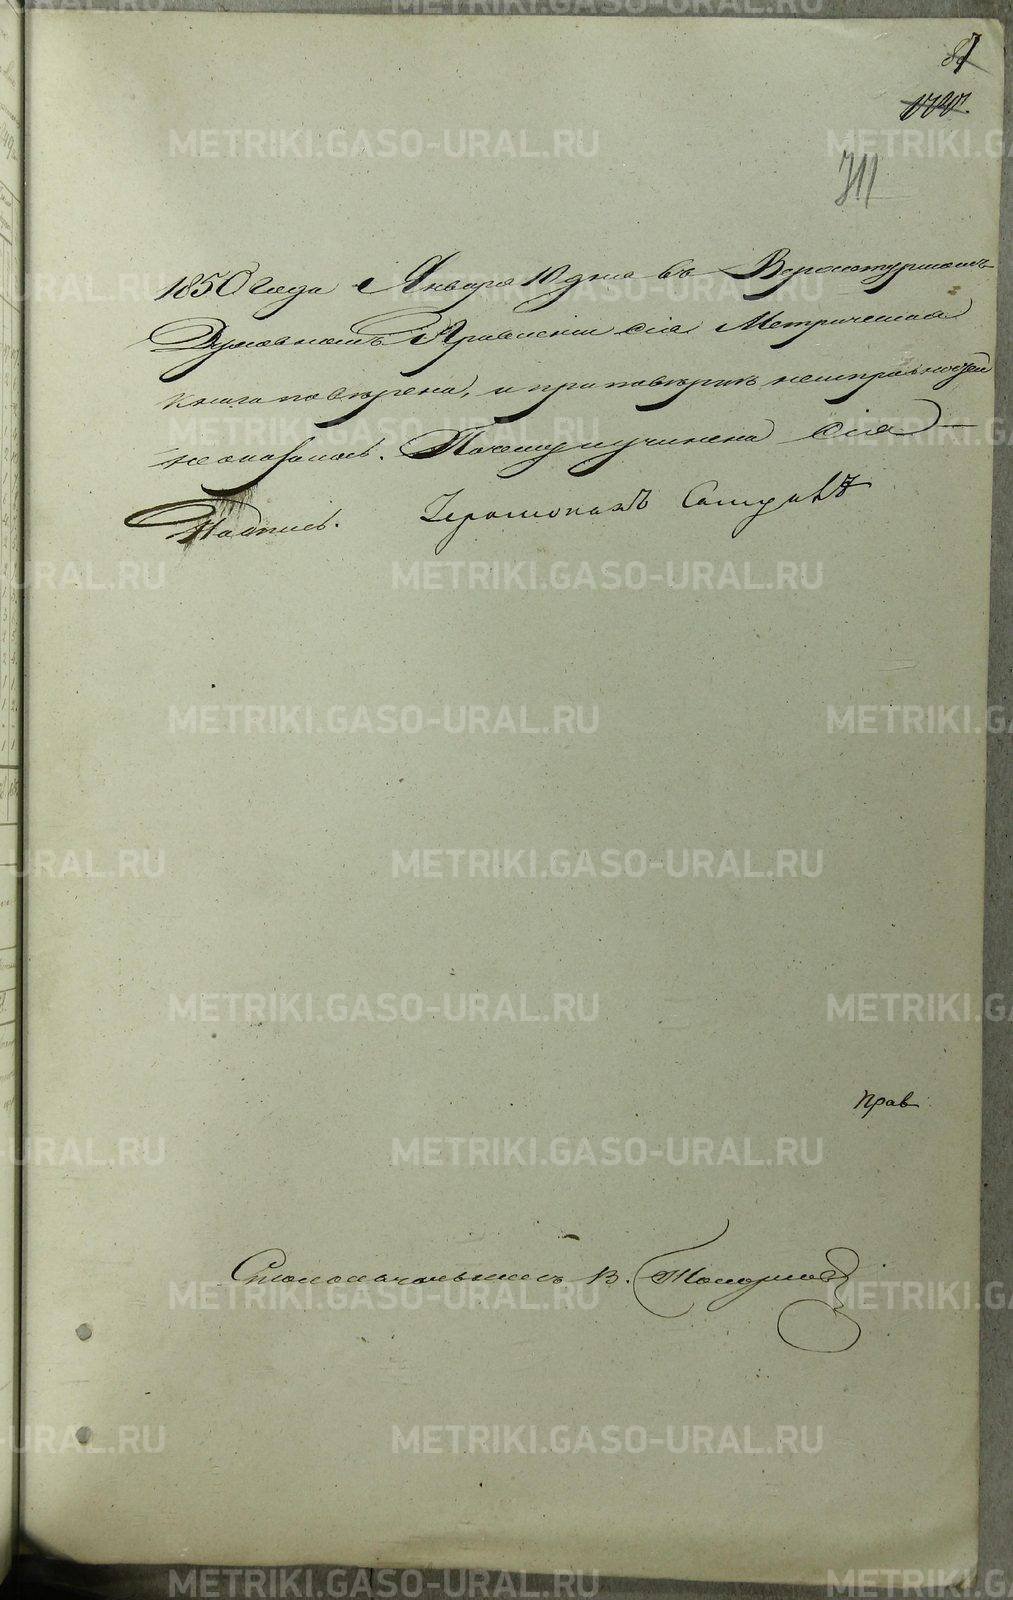 87
1720.
711
1850 года Января 10 дня въ Верхотурскомъ
Духовномъ Правленіи сія Метрическая
книга повѣрена, и при повѣркѣ неисправностей
не оказалось. Почему и учинена сія
Надпись. Іеромонахъ
Прав
Столоначальникъ В. Топорковъ
METRIKI.GASO-URAL.RU